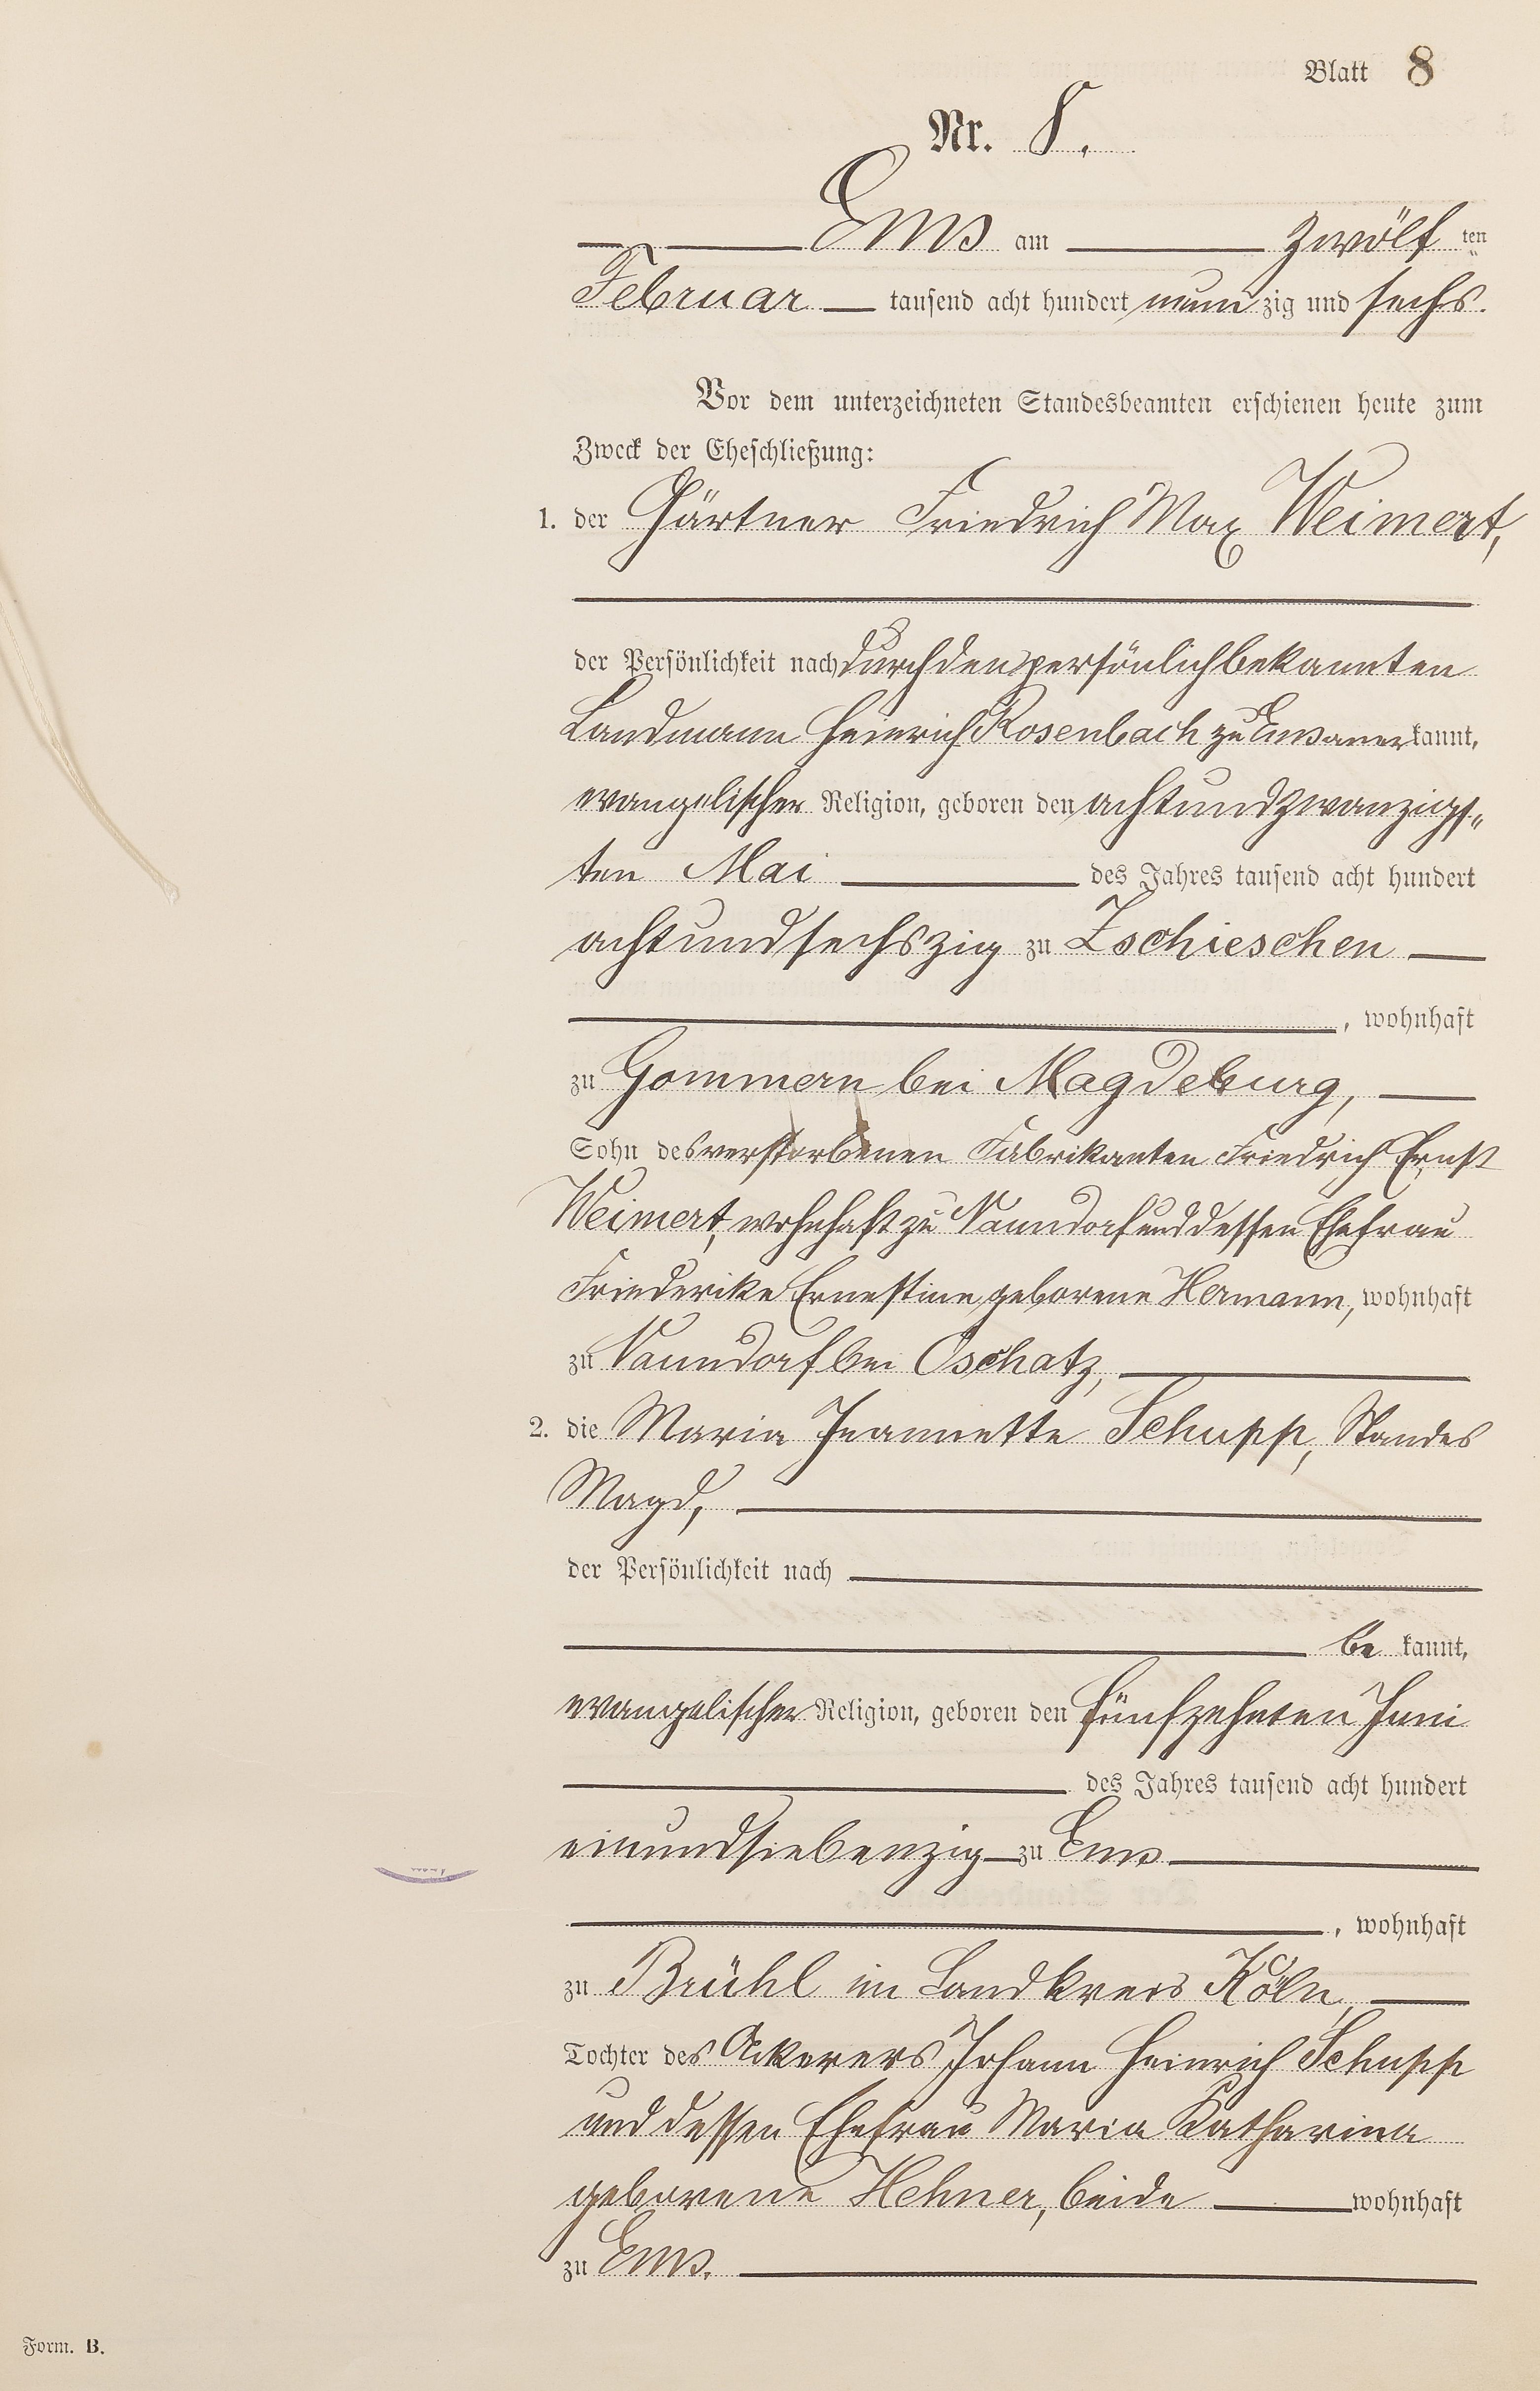 Blatt 8
Nr. 8.
Ems am zwölf ten
Februar tausend acht hundert neun zig und sechs.
Vor dem unterzeichneten Standesbeamten erschienen heute zum
Zweck der Eheschließung:
1. der Gärtner Friedrich Max Weimert,
der Persönlichkeit nach durch den persönlich bekannten
Landmann Heinrich Rosenbach zu Ems anerkannt,
evangelischer Religion, geboren den achtundzwanzigs-
ten Mai des Jahres tausend acht hundert
achtundsechszig zu Zschieschen
, wohnhaft
zu Gommern bei Magdeburg,
Sohn des verstorbenen Fabrikanten Friedrich Ernst
Weimert, wohnhaft zu Naundorf und dessen Ehefrau
Friederike Ernestine geborene Hermann, wohnhaft
zu Naundorf bei Oschatz,
2. die Maria Jeannette Schupp, Standes
Magd,
der Persönlichkeit nach
be kannt,
evangelischer Religion, geboren den fünfzehnten Juni
des Jahres tausend acht hundert
einundsiebenzig zu Ems
, wohnhaft
zu Brühl im Landkreis Köln,
Tochter des Ackerers Johann Heinrich Schupp
und dessen Ehefrau Maria Katharina
geborene Hehner, beide wohnhaft
zu Ems.
Form. B.